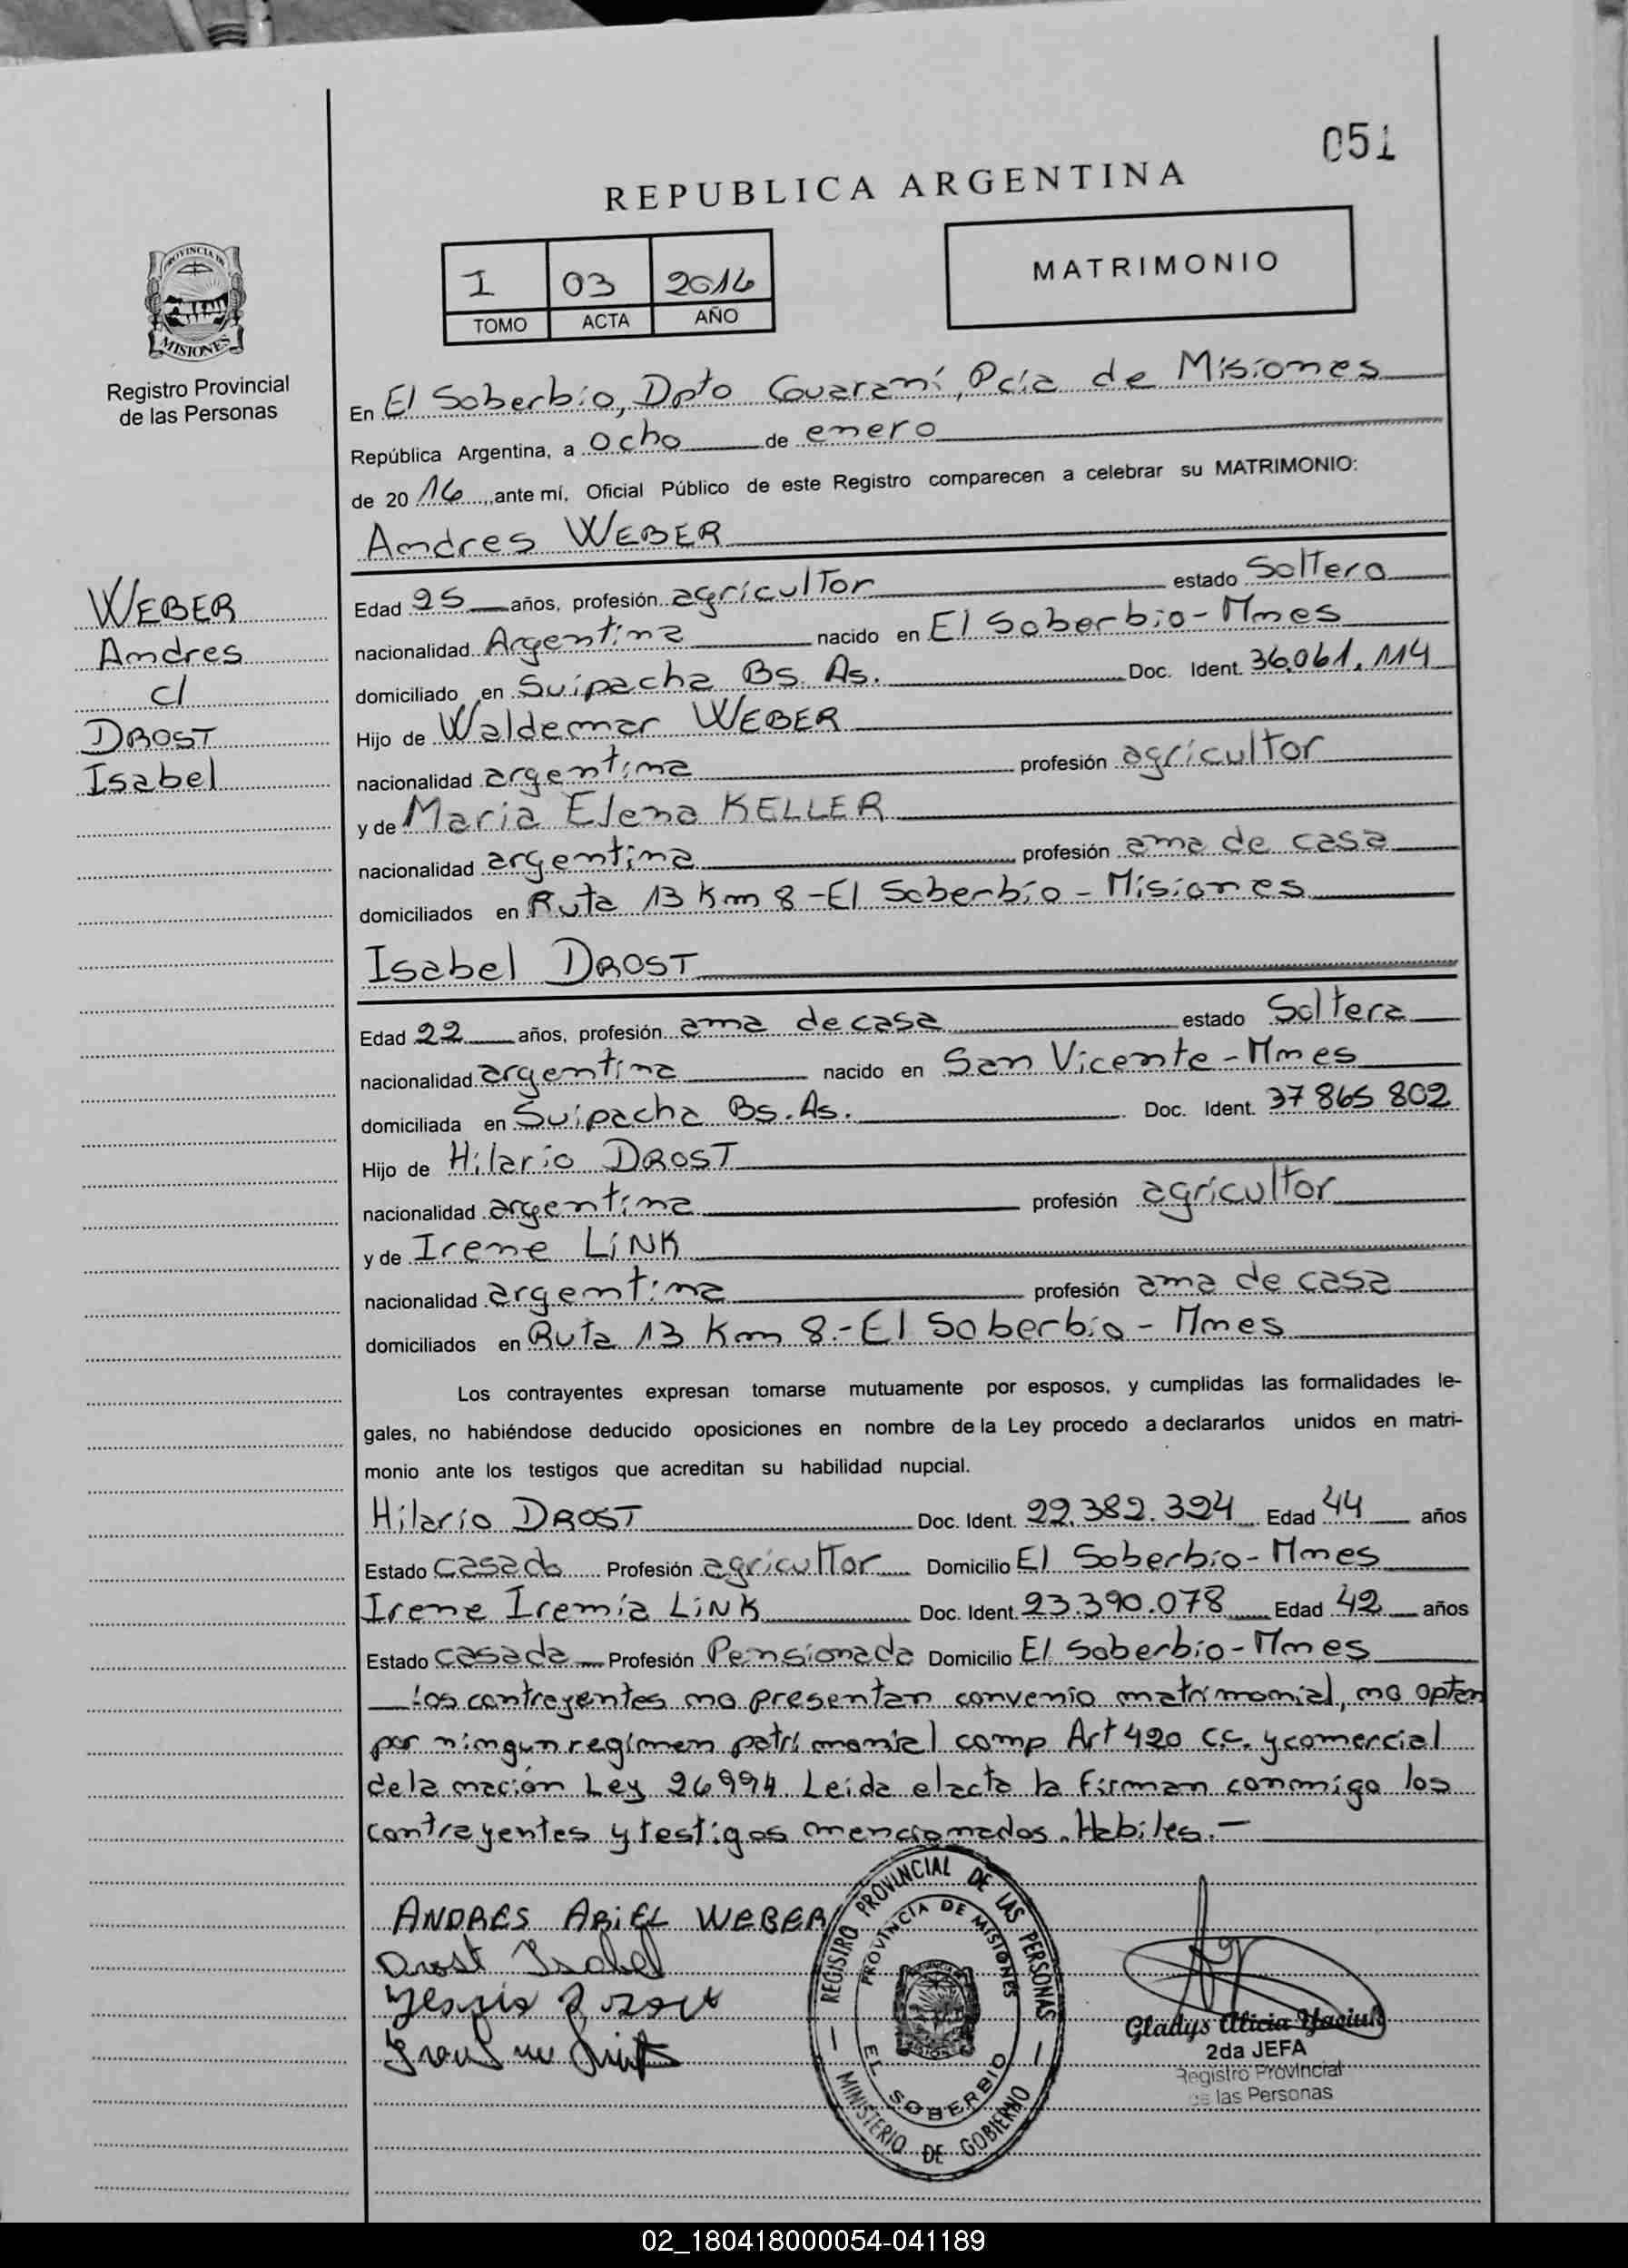 051
REPUBLICA ARGENTINA
PROVINCIA DE
MISIONES
Registro Provincial
de las Personas
I 03 2016
TOMO ACTA AÑO
MATRIMONIO
En El Soberbio, Dpto Guaraní, Pcia de Misiones
República Argentina, a ocho de enero
de 20 16, ante mí, Oficial Público de este Registro comparecen a celebrar su MATRIMONIO:
WEBER
Andres
c/
DROST
Isabel
Andres WEBER
Edad 25 años, profesión agricultor estado Soltero
nacionalidad Argentina nacido en El Soberbio - Mnes
domiciliado en Suipacha Bs. As. Doc. Ident. 36.061.114
Hijo de Waldemar WEBER
nacionalidad argentina profesión agricultor
y de Maria Elena KELLER
nacionalidad argentina profesión ama de casa
domiciliados en Ruta 13 Km 8 - El Soberbio - Misiones
Isabel DROST
Edad 22 años, profesión ama de casa estado Soltera
nacionalidad argentina nacido en San Vicente - Mnes
domiciliada en Suipacha Bs. As. Doc. Ident. 37 865 802
Hijo de Hilario DROST
nacionalidad argentina profesión agricultor
y de Irene LiNK
nacionalidad argentina profesión ama de casa
domiciliados en Ruta 13 Km 8.- El Soberbio - Mnes
Los contrayentes expresan tomarse mutuamente por esposos, y cumplidas las formalidades le-
gales, no habiéndose deducido oposiciones en nombre de la Ley procedo a declararlos unidos en matri-
monio ante los testigos que acreditan su habilidad nupcial.
Hilario DROST Doc. Ident. 22.382.324 Edad 44 años
Estado casado Profesión agricultor Domicilio El Soberbio - Mnes
Irene Iremia LiNK Doc. Ident. 23.390.078 Edad 42 años
Estado casada Profesión Pensionada Domicilio El Soberbio - Mnes
Los contrayentes no presentan convenio matrimonial, no optan
por ningun regimen patrimonial comp Art 420 C.C. y comercial
de la nación Ley 26994. Leida el acta la firman conmigo los
contrayentes y testigos mencionados. Habiles.-
ANDRES ARiEL WEBER
Drost Isabel
REGISTRO PROVINCIAL DE LAS PERSONAS
PROVINCIA DE MISIONES
EL SOBERBIO
MINISTERIO DE GOBIERNO
Gladys Alicia Yaciuk
2da JEFA
Registro Provincial
de las Personas
02_180418000054-041189